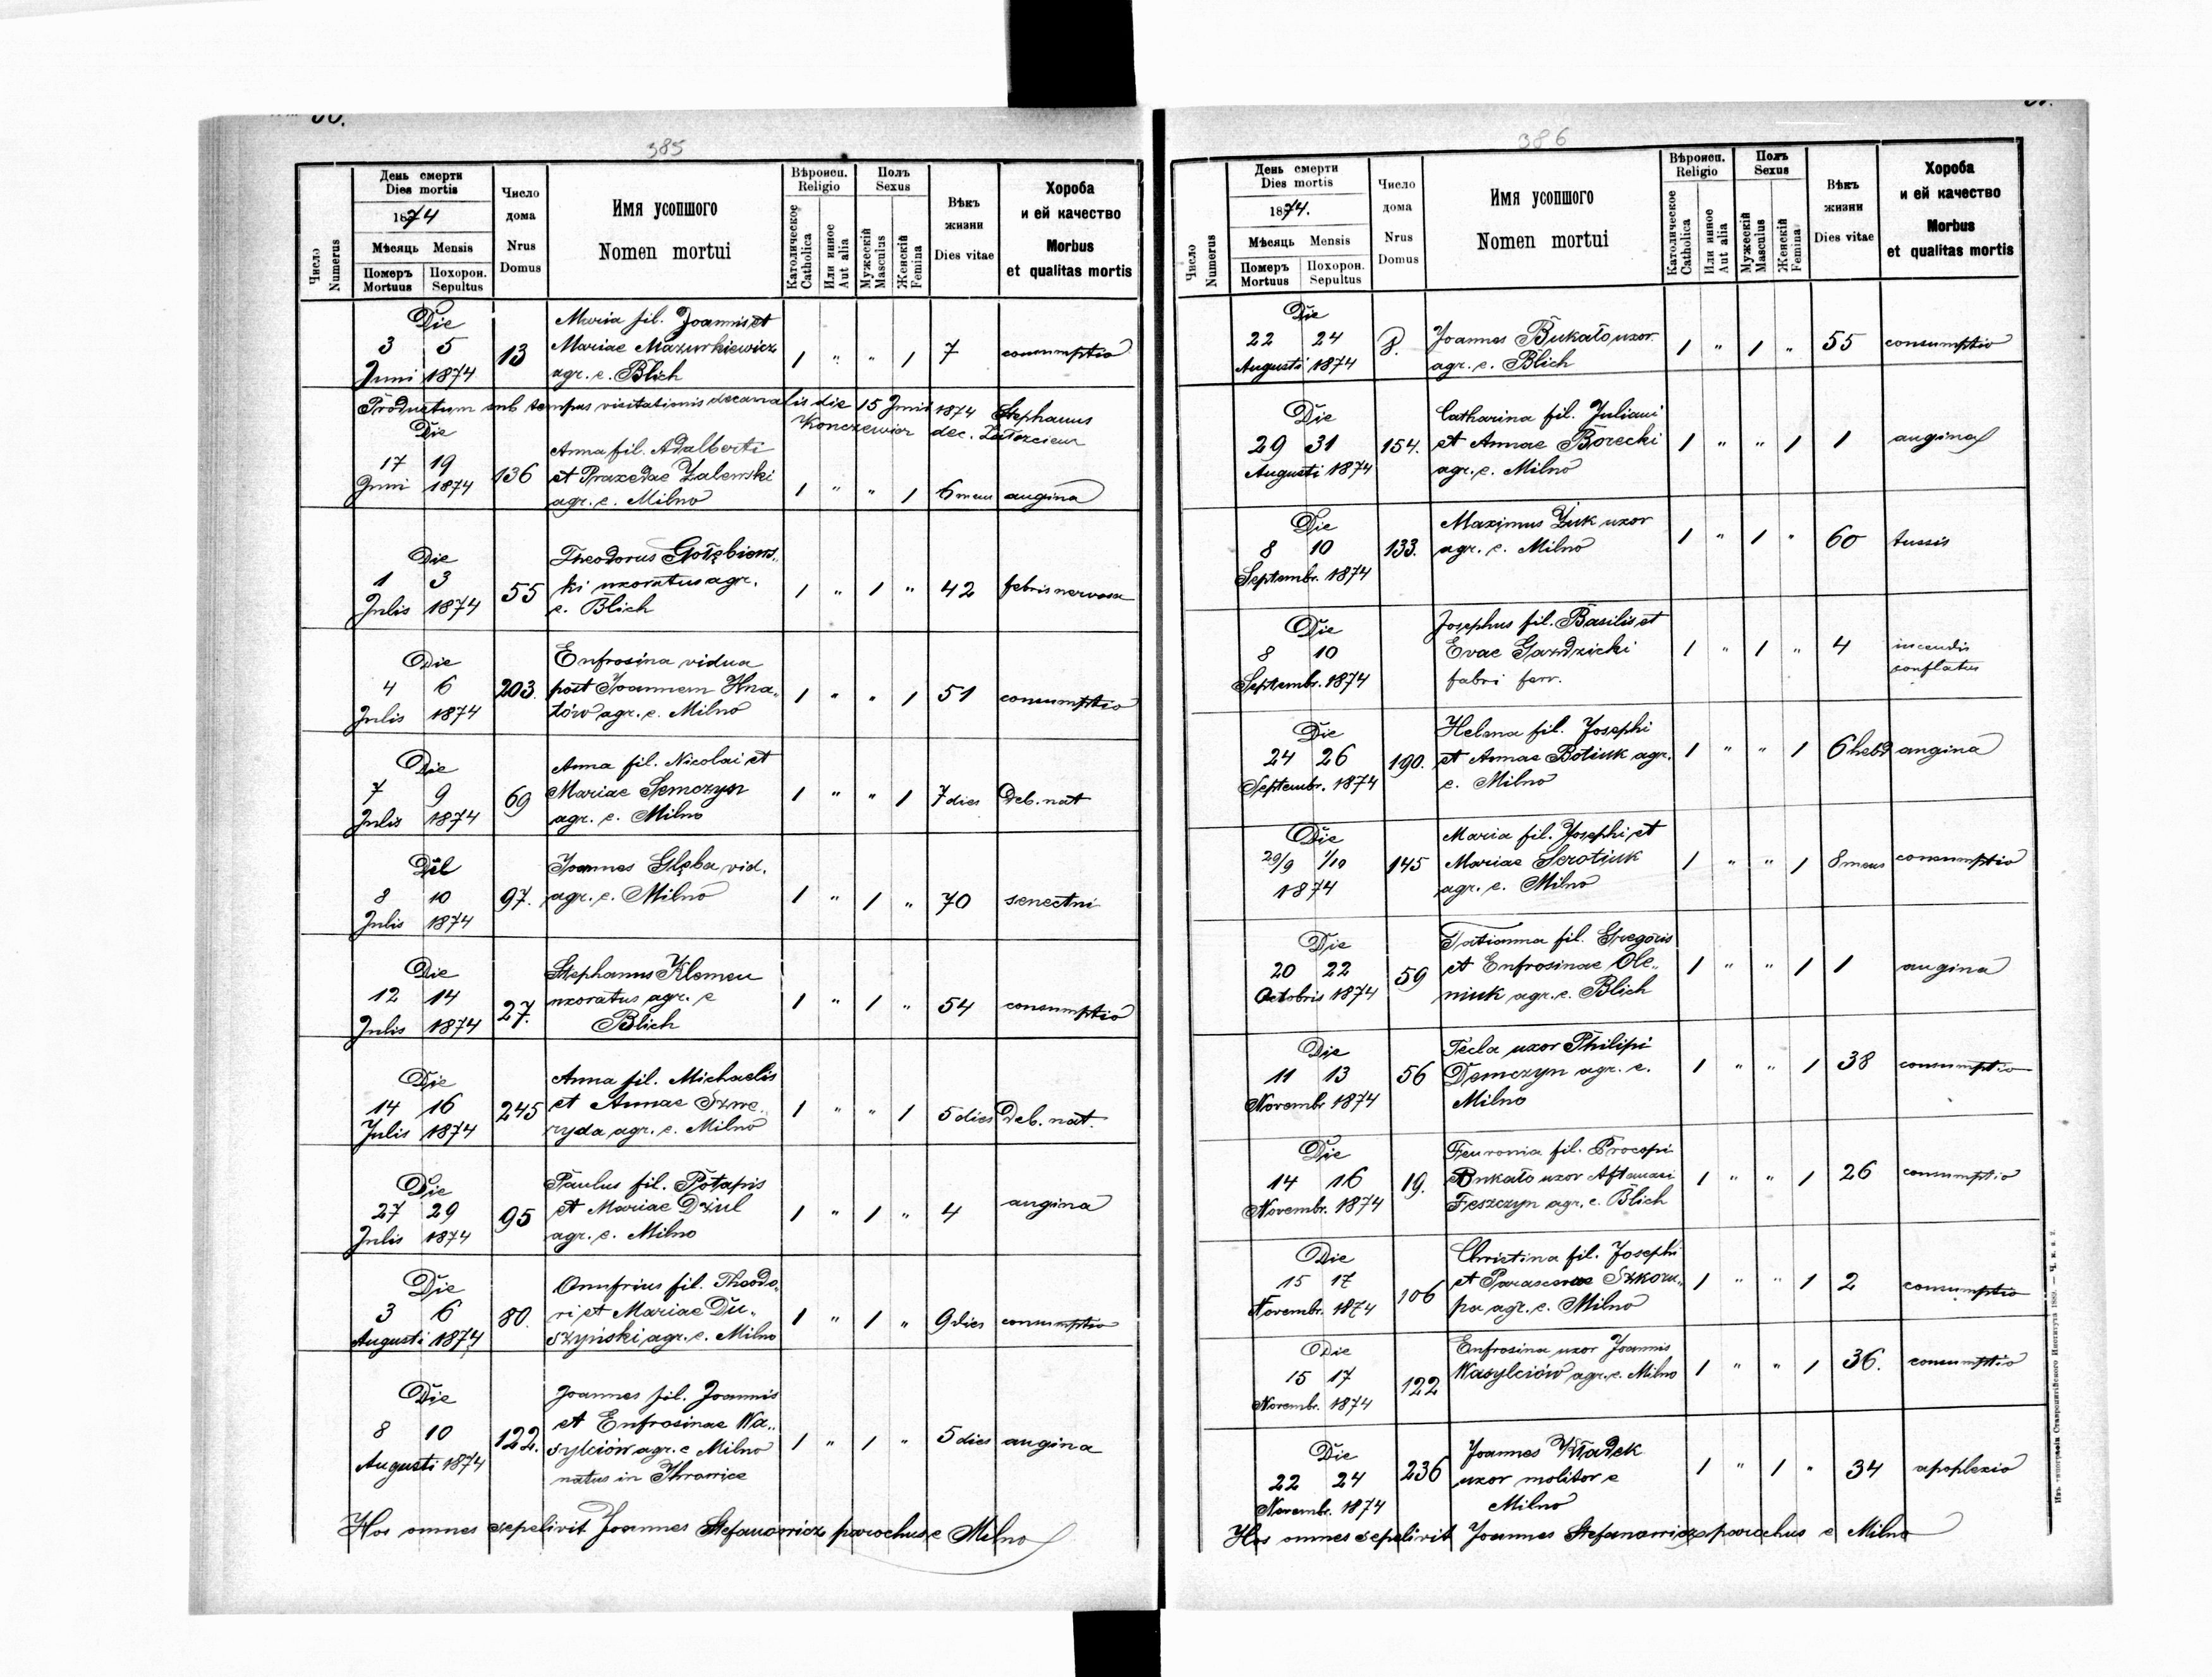 385
День смерти
Dies mortis
1874
Мѣсяць Mensis
Померъ Похорон.
Mortuus Sepultus
Число
Numerus
Число
дома
Nrus
Domus
Имя усопшого
Nomen mortui
Вѣроисп.
Religio
Католическое
Catholica
Или инное
Aut alia
Полъ
Sexus
Мужескій
Masculus
Женскій
Femina
Вѣкъ
жизни
Dies vitae
Хороба
и ей качество
Morbus
et qualitas mortis
Die
3 5
Juni 1874
13
Maria fil. Joannis et
Mariae Mazurkiewicz
agr. e. Blich
1 " " 1 7 consumptio
Productum sub tempus visitationis decanalis die 15 Junii 1874 Stephanus
Konczewicz dec.
Die
17 19
Juni 1874
136
Anna fil. Adalberti
et Praxedae Zalewski
agr. e. Milno
1 " " 1 6 mens angina
Die
1 3
Julis 1874
55
Theodorus Gołębiews„
ki uxoratus agr.
e. Blich
1 " 1 " 42 febris nervosa
Die
4 6
Julis 1874
203.
Eufrosina vidua
post Joannem Hna„
tów agr. e. Milno
1 " " 1 51 consumptio
Die
7 9
Julis 1874
69
Anna fil. Nicolai et
Mariae Semczysz
agr. e. Milno
1 " " 1 7 dies Deb. nat
Die
8 10
Julis 1874
97.
Joannes Głęba vid.
agr. e. Milno
1 " 1 " 70 senectui
Die
12 14
Julis 1874
27.
Stephanus Klemen
uxoratus agr. e
Blich
1 " 1 " 54 consumptio
Die
14 16
Julis 1874
245
Anna fil. Michaelis
et Annae Szwe„
ryda agr. e. Milno
1 " " 1 5 dies Deb. nat.
Die
27 29
Julis 1874
95
Paulus fil. Potapis
et Mariae Dziul
agr. e. Milno
1 " 1 " 4 angina
Die
3 6
Augusti 1874
80.
Onufrius fil. Theodo„
ri et Mariae Du„
szyński agr. e. Milno
1 " 1 " 9 dies consumptio
Die
8 10
Augusti 1874
122.
Joannes fil. Joannis
et Eufrosinae Wa„
sylciów agr. e Milno
natus in Ihrowice
1 " 1 " 5 dies angina
Hos omnes sepelivit Joannes Stefanowicz parochus e Milno
386
День смерти
Dies mortis
1874.
Мѣсяць Mensis
Померъ Похорон.
Mortuus Sepultus
Число
Numerus
Число
дома
Nrus
Domus
Имя усопшого
Nomen mortui
Вѣроисп.
Religio
Католическое
Catholica
Или инное
Aut alia
Полъ
Sexus
Мужескій
Masculus
Женскій
Femina
Вѣкъ
жизни
Dies vitae
Хороба
и ей качество
Morbus
et qualitas mortis
Die
22 24
Augusti 1874
8.
Joannes Bukało uxor.
agr. e. Blich
1 " 1 " 55 consumptio
Die
29 31
Augusti 1874
154.
Catharina fil. Juliani
et Annae Borecki
agr. e. Milno
1 " " 1 1 angina
Die
8 10
Septembr. 1874
133.
Maximus Żuk uxor
agr. e. Milno
1 " 1 " 60 tussis
Die
8 10
Septembr. 1874
Josephus fil. Basilis et
Evae Gawdzicki
fabri ferr.
1 " 1 " 4 incendis
conflatus
Die
24 26
Septembr. 1874
190.
Helena fil. Josephi
et Annae Botiuk agr.
e. Milno
1 " " 1 6 hebd angina
Die
29/9 1/10
1874
145
Maria fil. Josephi et
Mariae Serotiuk
agr. e. Milno
1 " " 1 8 mens consumptio
Die
20 22
Octobris 1874
59
Tatianna fil. Gregoris
et Eufrosinae Ole„
niuk agr. e. Blich
1 " " 1 1 angina
Die
11 13
Novembr 1874
56
Tecla uxor Philipi
Demczyn agr. e.
Milno
1 " " 1 38 consumptio
Die
14 16
Novembr. 1874
19.
Feuronia fil. Procopi
Bukało uxor Aftanasi
Feszczyn agr. e. Blich
1 " " 1 26 consumptio
Die
15 17
Novembr. 1874
106
Christina fil. Josephi
et Parascevae Szkoru„
pa agr. e. Milno
1 " " 1 2 consumptio
Die
15 17
Novembr. 1874
122
Eufrosina uxor Joannis
Wasylciów agr. e. Milno
1 " " 1 36. consumptio
Die
22 24
Novembr. 1874
236
Joannes Kładek
uxor molitor e
Milno
1 " 1 " 34 apoplexio
Hos omnes sepelivit Joannes Stefanowicz parochus e Milno
Изъ типографіи Ставропигійского Института 1889.